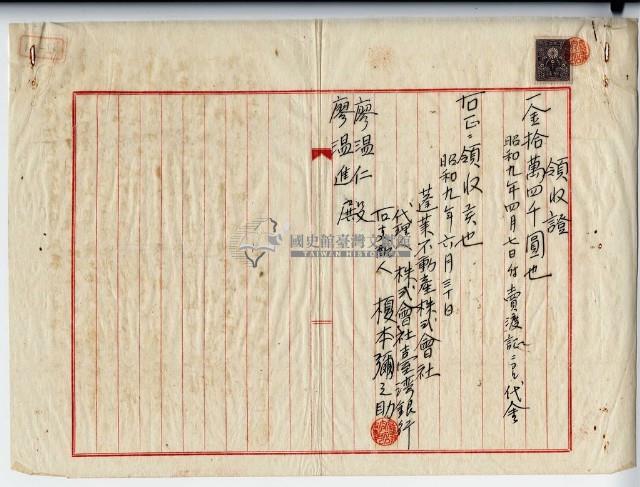 領收證
一金拾萬四千圓也
昭和九年四月七日付賣渡証ニ代金
右正ニ領收候也
昭和九年六月三十日
蓬萊不動產株式會社
代理人 株式會社臺灣銀行
右 人 榎本彌之助
廖温仁
廖温進 殿
國史館臺灣文獻館
TAIWAN HISTORICA